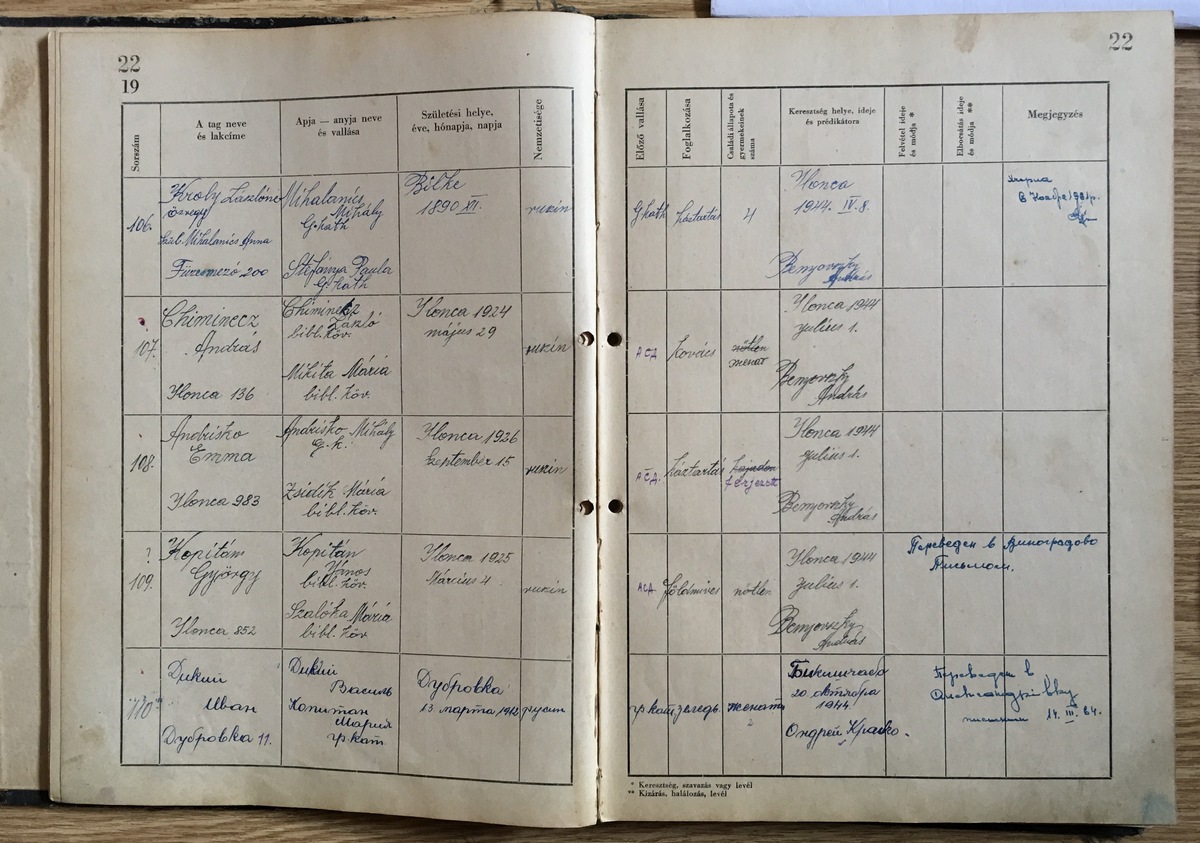 22
19
Sorszám
A tag neve
és lakcíme
Apja — anyja neve
és vallása
Születési helye,
éve, hónapja, napja
Nemzetisége
106.
Kroly Lászlóné
özvegy
szül. Mihalanics Anna
Füzesmező 200
Mihalanics
Mihály
G. kath
Stefánya Paula
G. kath
Bilke
1890 XII.
ruzin
107.
Chiminecz
András
Ilonca 136
Chiminecz
László
bibl. köv.
Mikita Mária
bibl. köv.
Ilonca 1924
május 29
ruzin
108.
Andrisko
Emma
Ilonca 983
Andrisko Mihály
G. k.
Zsidik Mária
bibl. köv.
Ilonca 1926
szeptember 15
ruzin
?
109.
Kopitán
György
Ilonca 852
Kopitán
János
bibl. köv.
Szalóka Mária
bibl. köv
Ilonca 1925
Március 4
ruzin
110
Дикий
Иван
Дубровка 11.
Дикий
Василь
Копитан
Мария
гр. кат.
Дубровка
13 марта 1912
русин
22
Előző vallása
Foglalkozása
Családi állapota és
gyermekeinek
száma
Keresztség helye, ideje
és prédikátora
Felvétel ideje
és módja *
Elbocsátás ideje
és módja **
Megjegyzés
G kath
háztartás
4
Ilonca
1944. IV. 8.
Benyovszky
András
в Ноябре 1981 р.
АСД
kovács
nőtlen
женат
Ilonca 1944
julius 1.
Benyovszky
András
АСД.
háztartás
hajadon
férjezett
Ilonca 1944
julius 1.
Benyovszky
András
АСД.
földmives
nőtlen
Ilonca 1944
julius 1.
Benyovszky
András
Переведен в Виноградово
Письмом.
гр кат
женат
2
20 октября
1944.
Ондрей Крайко.
Переведен в
письмом 14. III. 64.
* Keresztség, szavazás vagy levél
** Kizárás, halálozás, levél